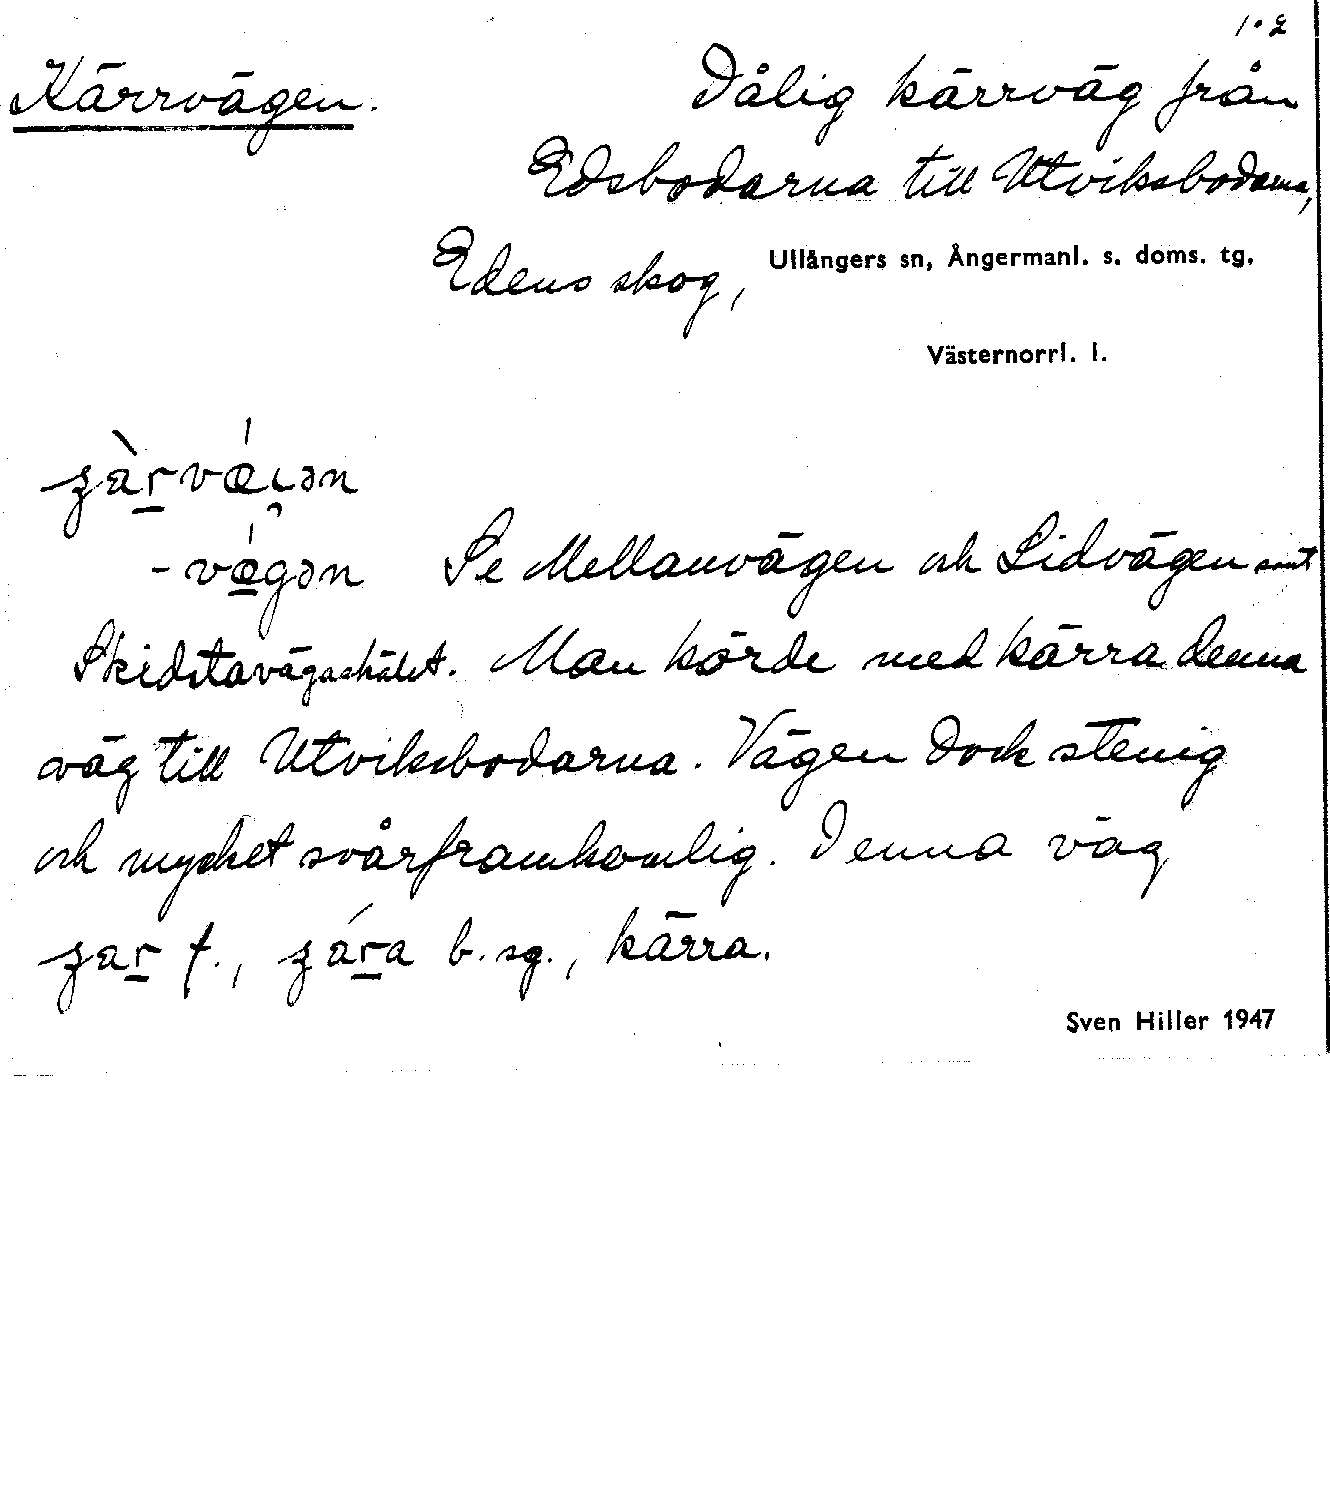 1.2
Kärrvägen.
Dålig kärrväg från
Edsbodarna till Utviksbodarna,
Edens skog, Ullångers sn, Ångermanl. s. doms. tg.
Västernorrl. l.
-vǽgən Se Mellanvägen och Lidvägen samt
Skidstavägaskälet. Man körde med kärra denna
väg till Utviksbodarna. Vägen dock stenig
och mycket svårframkomlig. Denna väg
f., b. sg., kärra.
Sven Hiller 1947